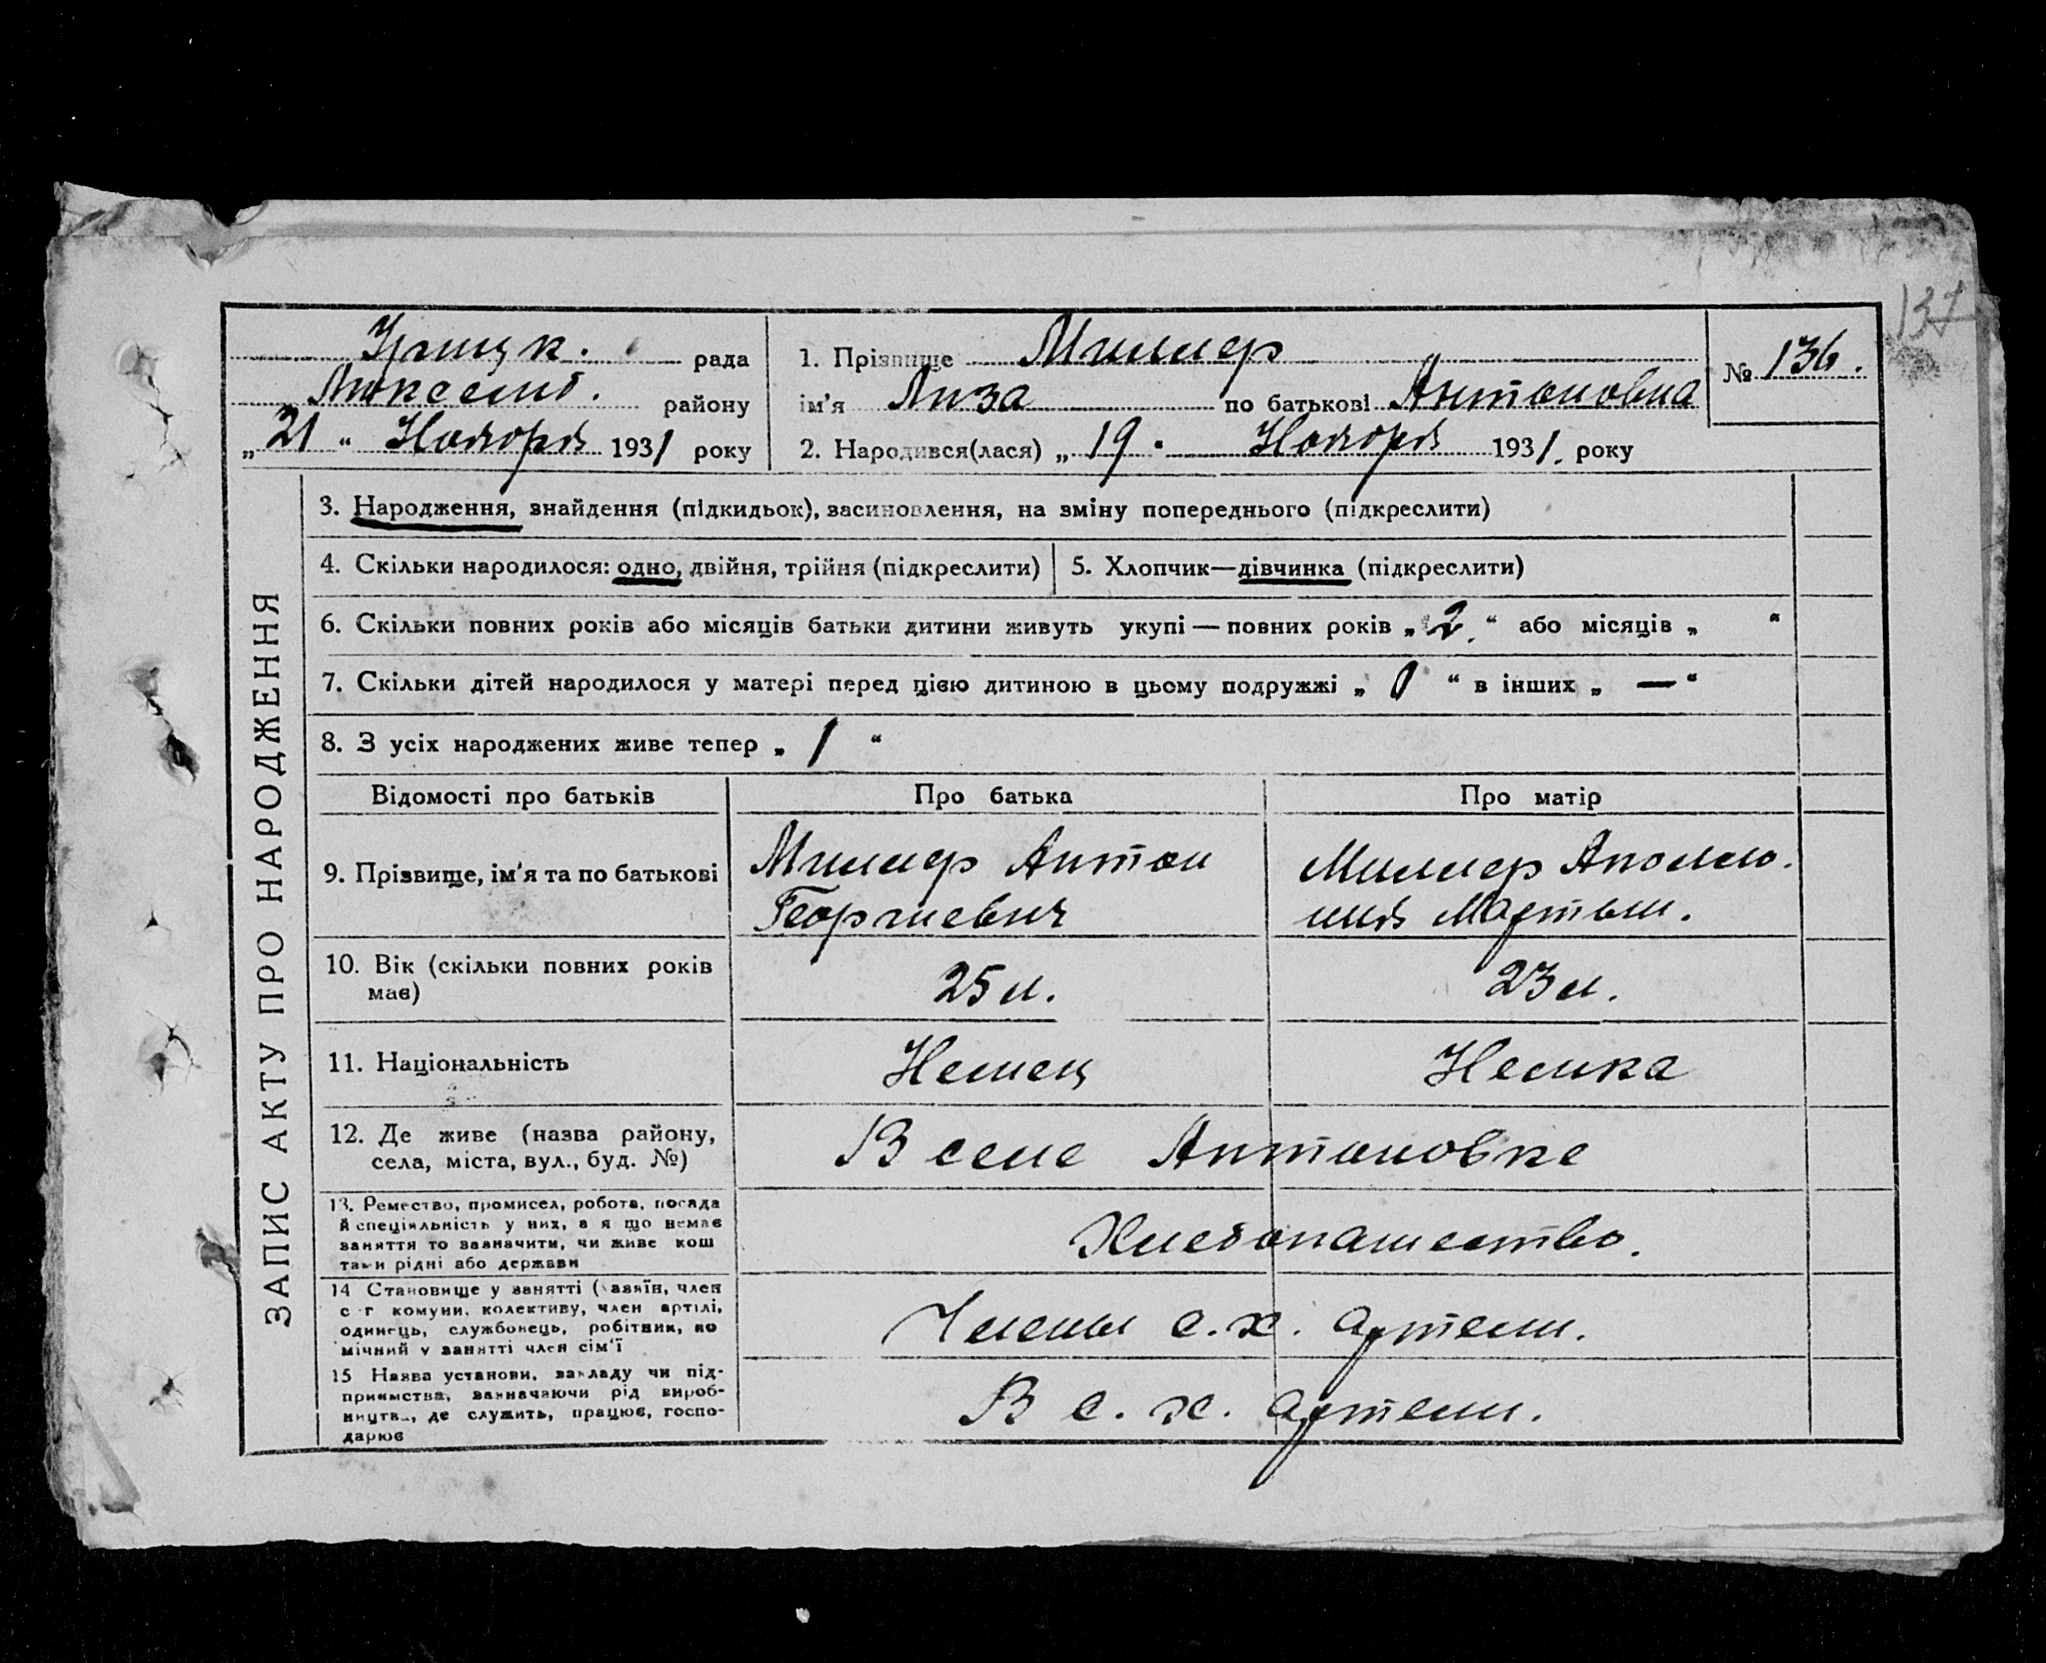 137
Урицк. рада
Люксемб. району
„21“ Ноября 1931 року
1. Прізвище Миллер
ім'я Лиза по батькові Антоновна
№ 136.
2. Народився(лася) „19. Ноября 1931. року
ЗАПИС АКТУ ПРО НАРОДЖЕННЯ
3. Народження, знайдення (підкидьок), засиновлення, на зміну попереднього (підкреслити)
4. Скільки народилося: одно, двійня, трійня (підкреслити)
5. Хлопчик—дівчинка (підкреслити)
6. Скільки повних років або місяців батьки дитини живуть укупі—повних років „2.“ або місяців „ “
7. Скільки дітей народилося у матері перед цією дитиною в цьому подружжі „0“ в інших „—“
8. З усіх народжених живе тепер „1“
Відомості про батьків Про батька Про матір
9. Прізвище, ім'я та по батькові
Миллер Антон
Георгиевич
Миллер Аполло-
ния Мартын.
10. Вік (скільки повних років
має)
25 л. 23 л.
11. Національність Немец Немка
12. Де живе (назва району,
села, міста, вул., буд. №)
В селе Антоновке
13. Ремество, промисел, робота, посада
й спеціяльність у них, а я що немає
заняття то зазначити, чи живе кош
тами рідні або держави
Хлебопашество.
14 Становище у занятті (хазяїн, член
с г комуни, колективу, член артілі,
одинець, службовець, робітник, по
мічний у занятті член сім'ї
Члены с.х. артели.
15 Назва установи, закладу чи під-
приємства, зазначаючи рід вироб-
ництва, де служить, працює, госпо-
дарює
В с. х. артели.